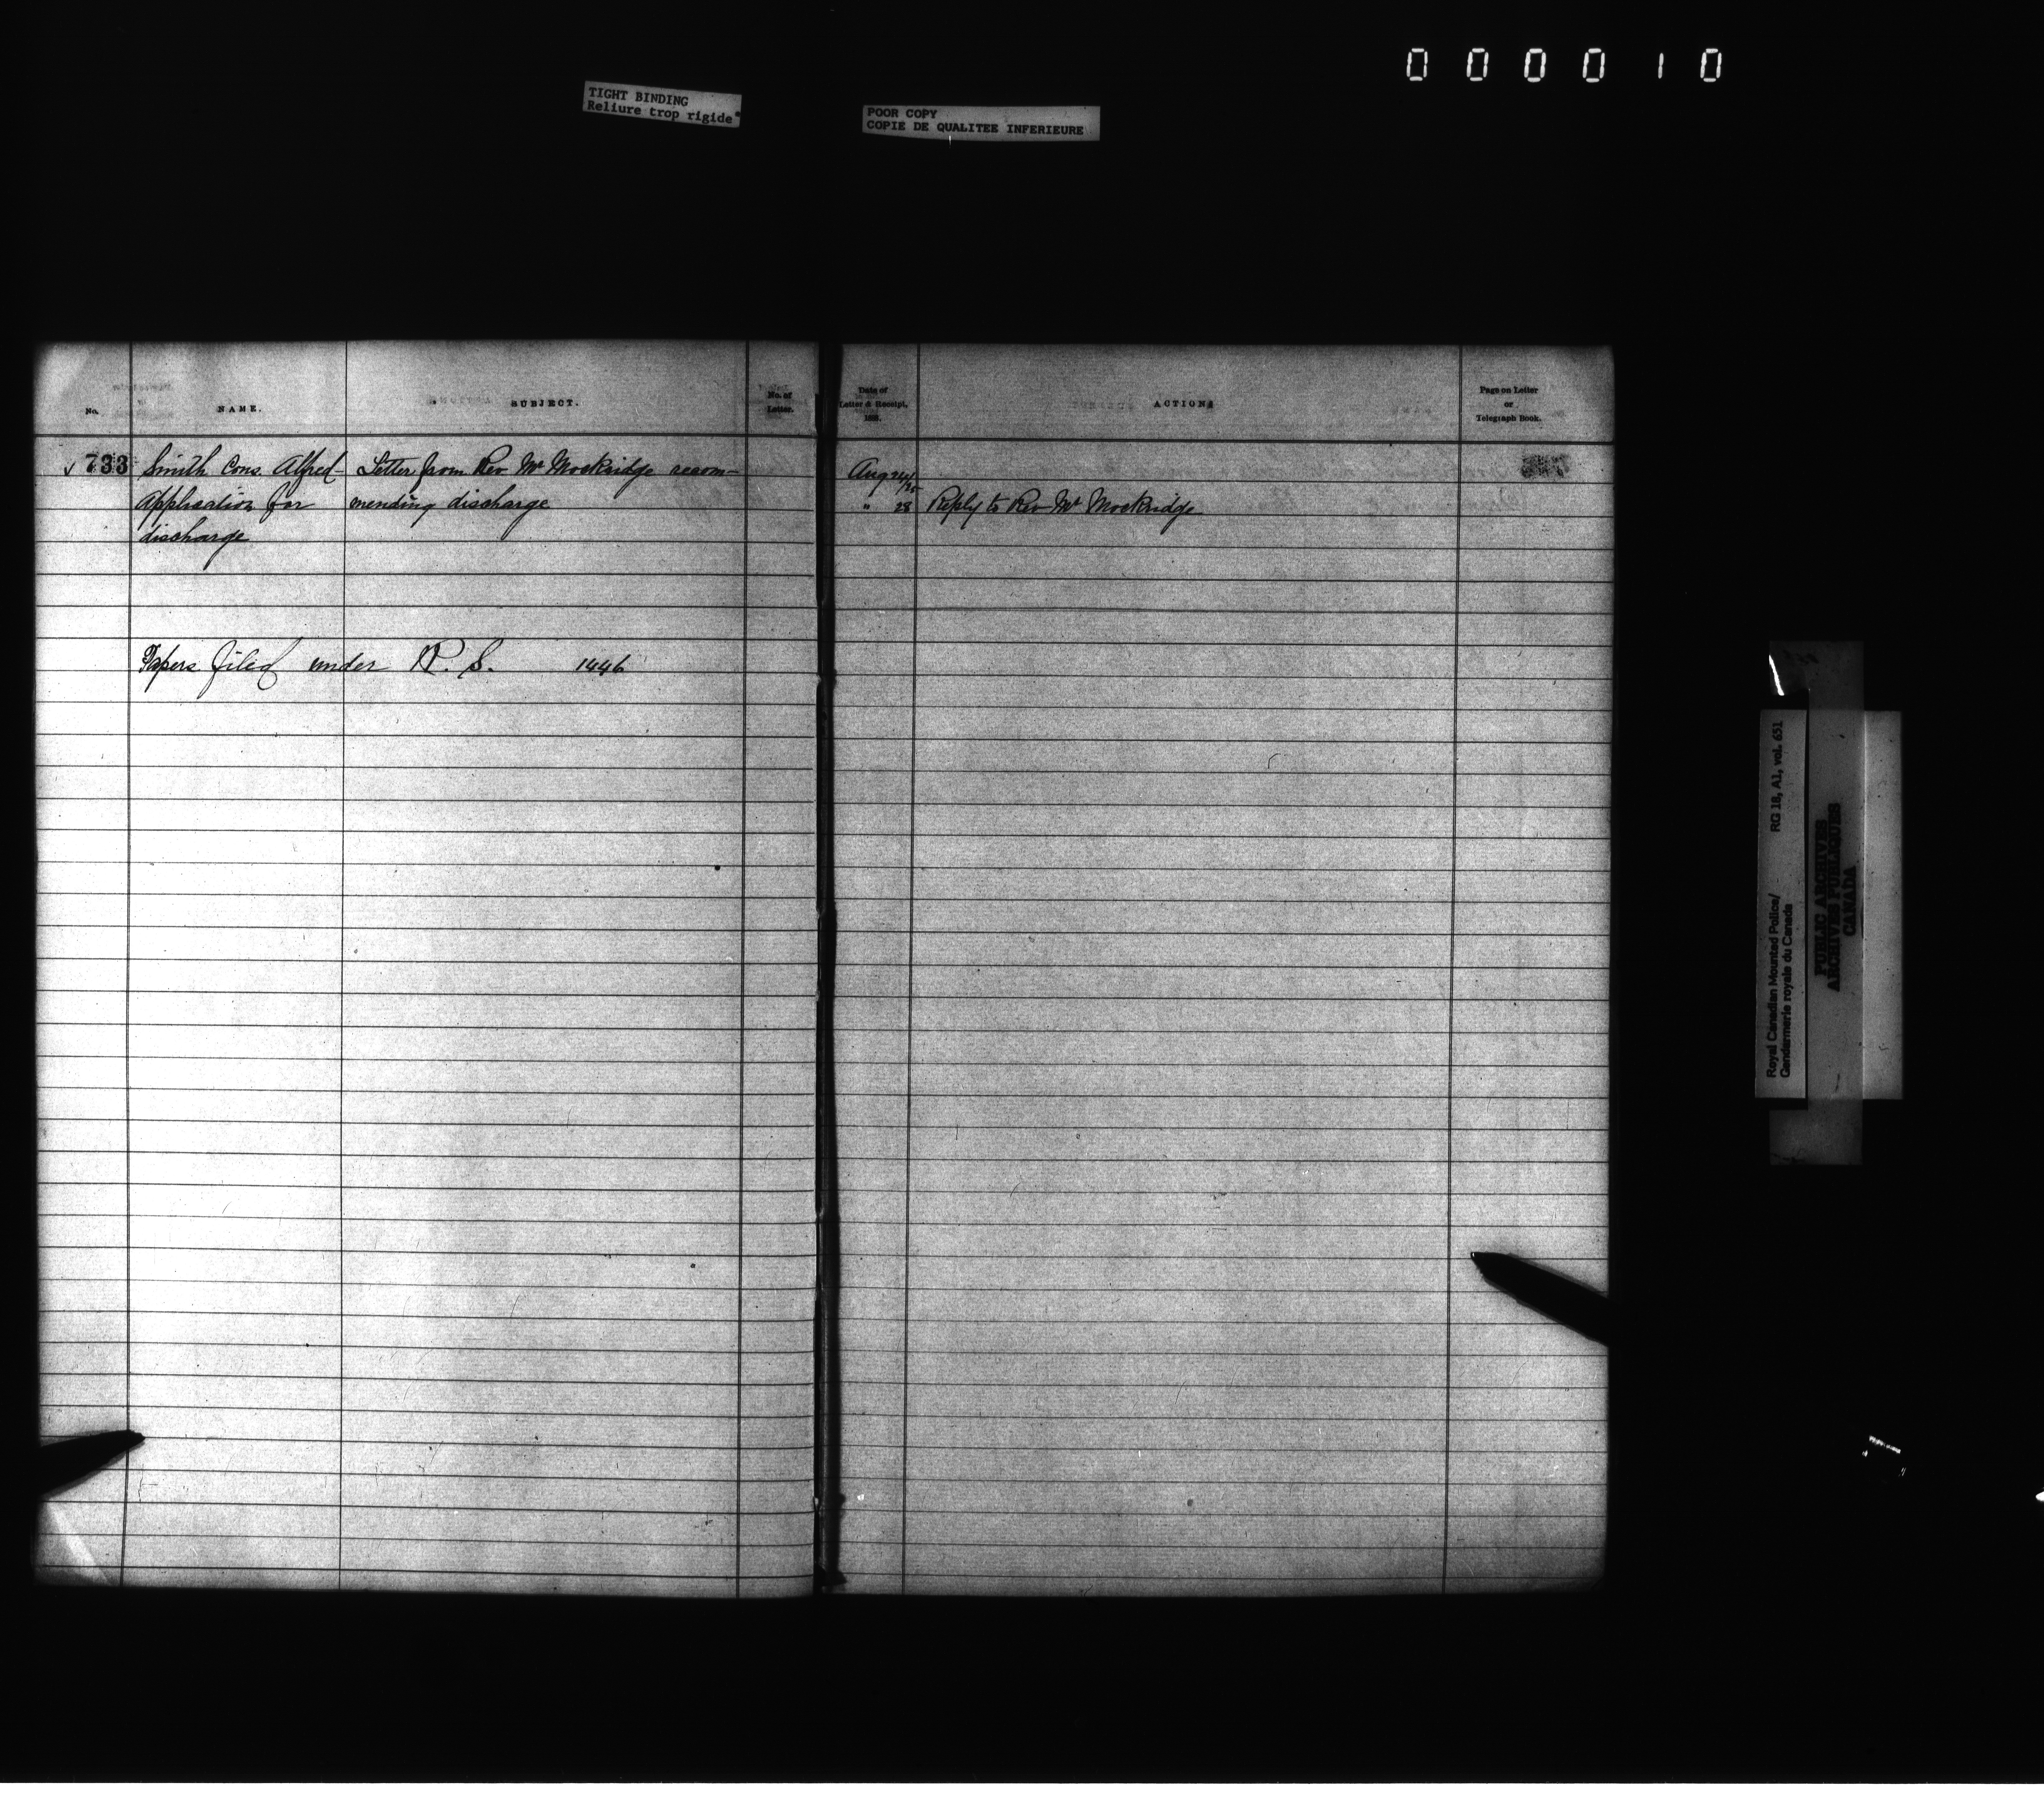 000010
TIGHT BINDING
Reliure trop rigide
POOR COPY
COPIE DE QUALITEE INFERIEURE
No.
NAME.
SUBJECT.
No. of
Letter.
Date of
Letter & Receipt,
188 .
ACTION
Page on Letter
or
Telegraph Book.
733 Smith Cons. Alfred – Letter from Rev Mr Mockridge recom-
Application for mending discharge
discharge
Aug 24/25
" 28 Reply to Rev Mr Mockridge
Papers filed under R. S. 1446
Royal Canadian Mounted Police/ RG 18, A1, vol. 651
Gendarmerie royale du Canada
PUBLIC ARCHIVES
ARCHIVES PUBLIQUES
CANADA